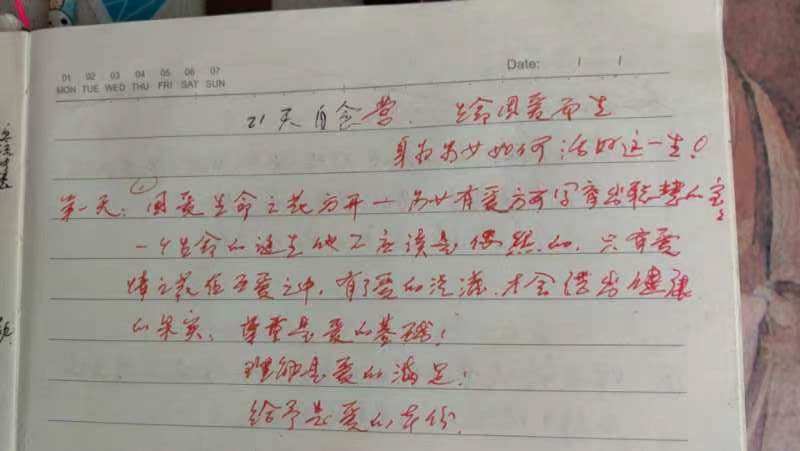 01 02 03 04 05 06 07
MON TUE WED THU FRI SAT SUN
Date: / /
21天自然营、生命因爱而生
身为为女如何活好这一生！
第一天：因爱生命之花方开一为女有爱方可孕育出聪慧的宝宝
一个生命的诞生他不应该是偶然的，只有爱
情之花在百爱之中，有了爱的浇灌，才会结出健康
的果实；尊重是爱的基础！
理解是爱的满足！
给予是爱的